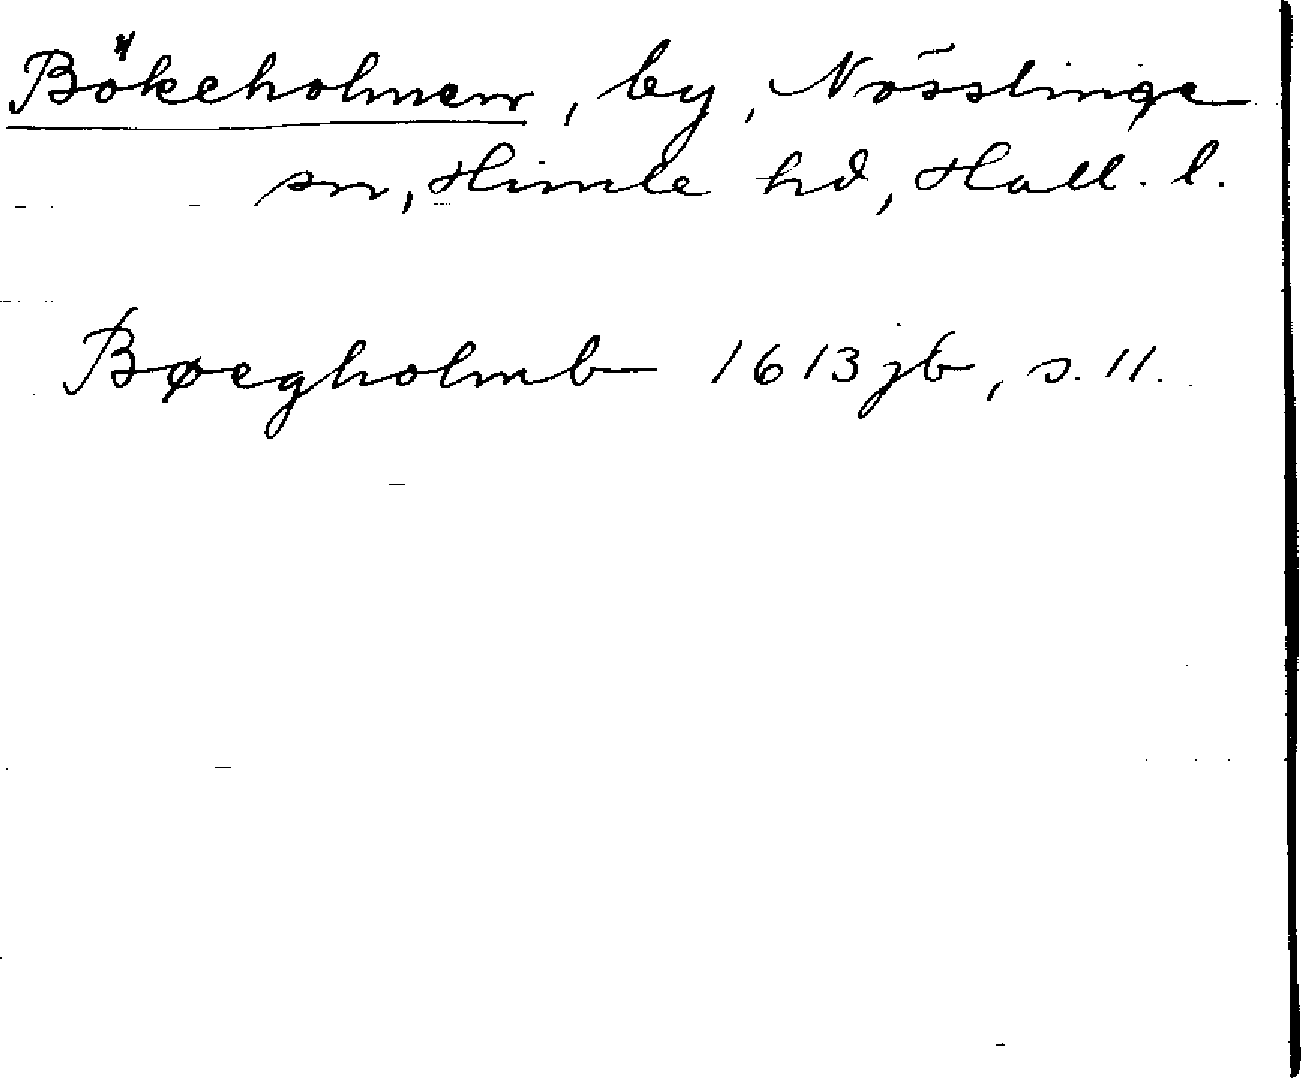 Bökeholmen, by, Nösslinge
sn, Himle hd, Hall. l.
Bøegholmb 1613 jb, s. 11.